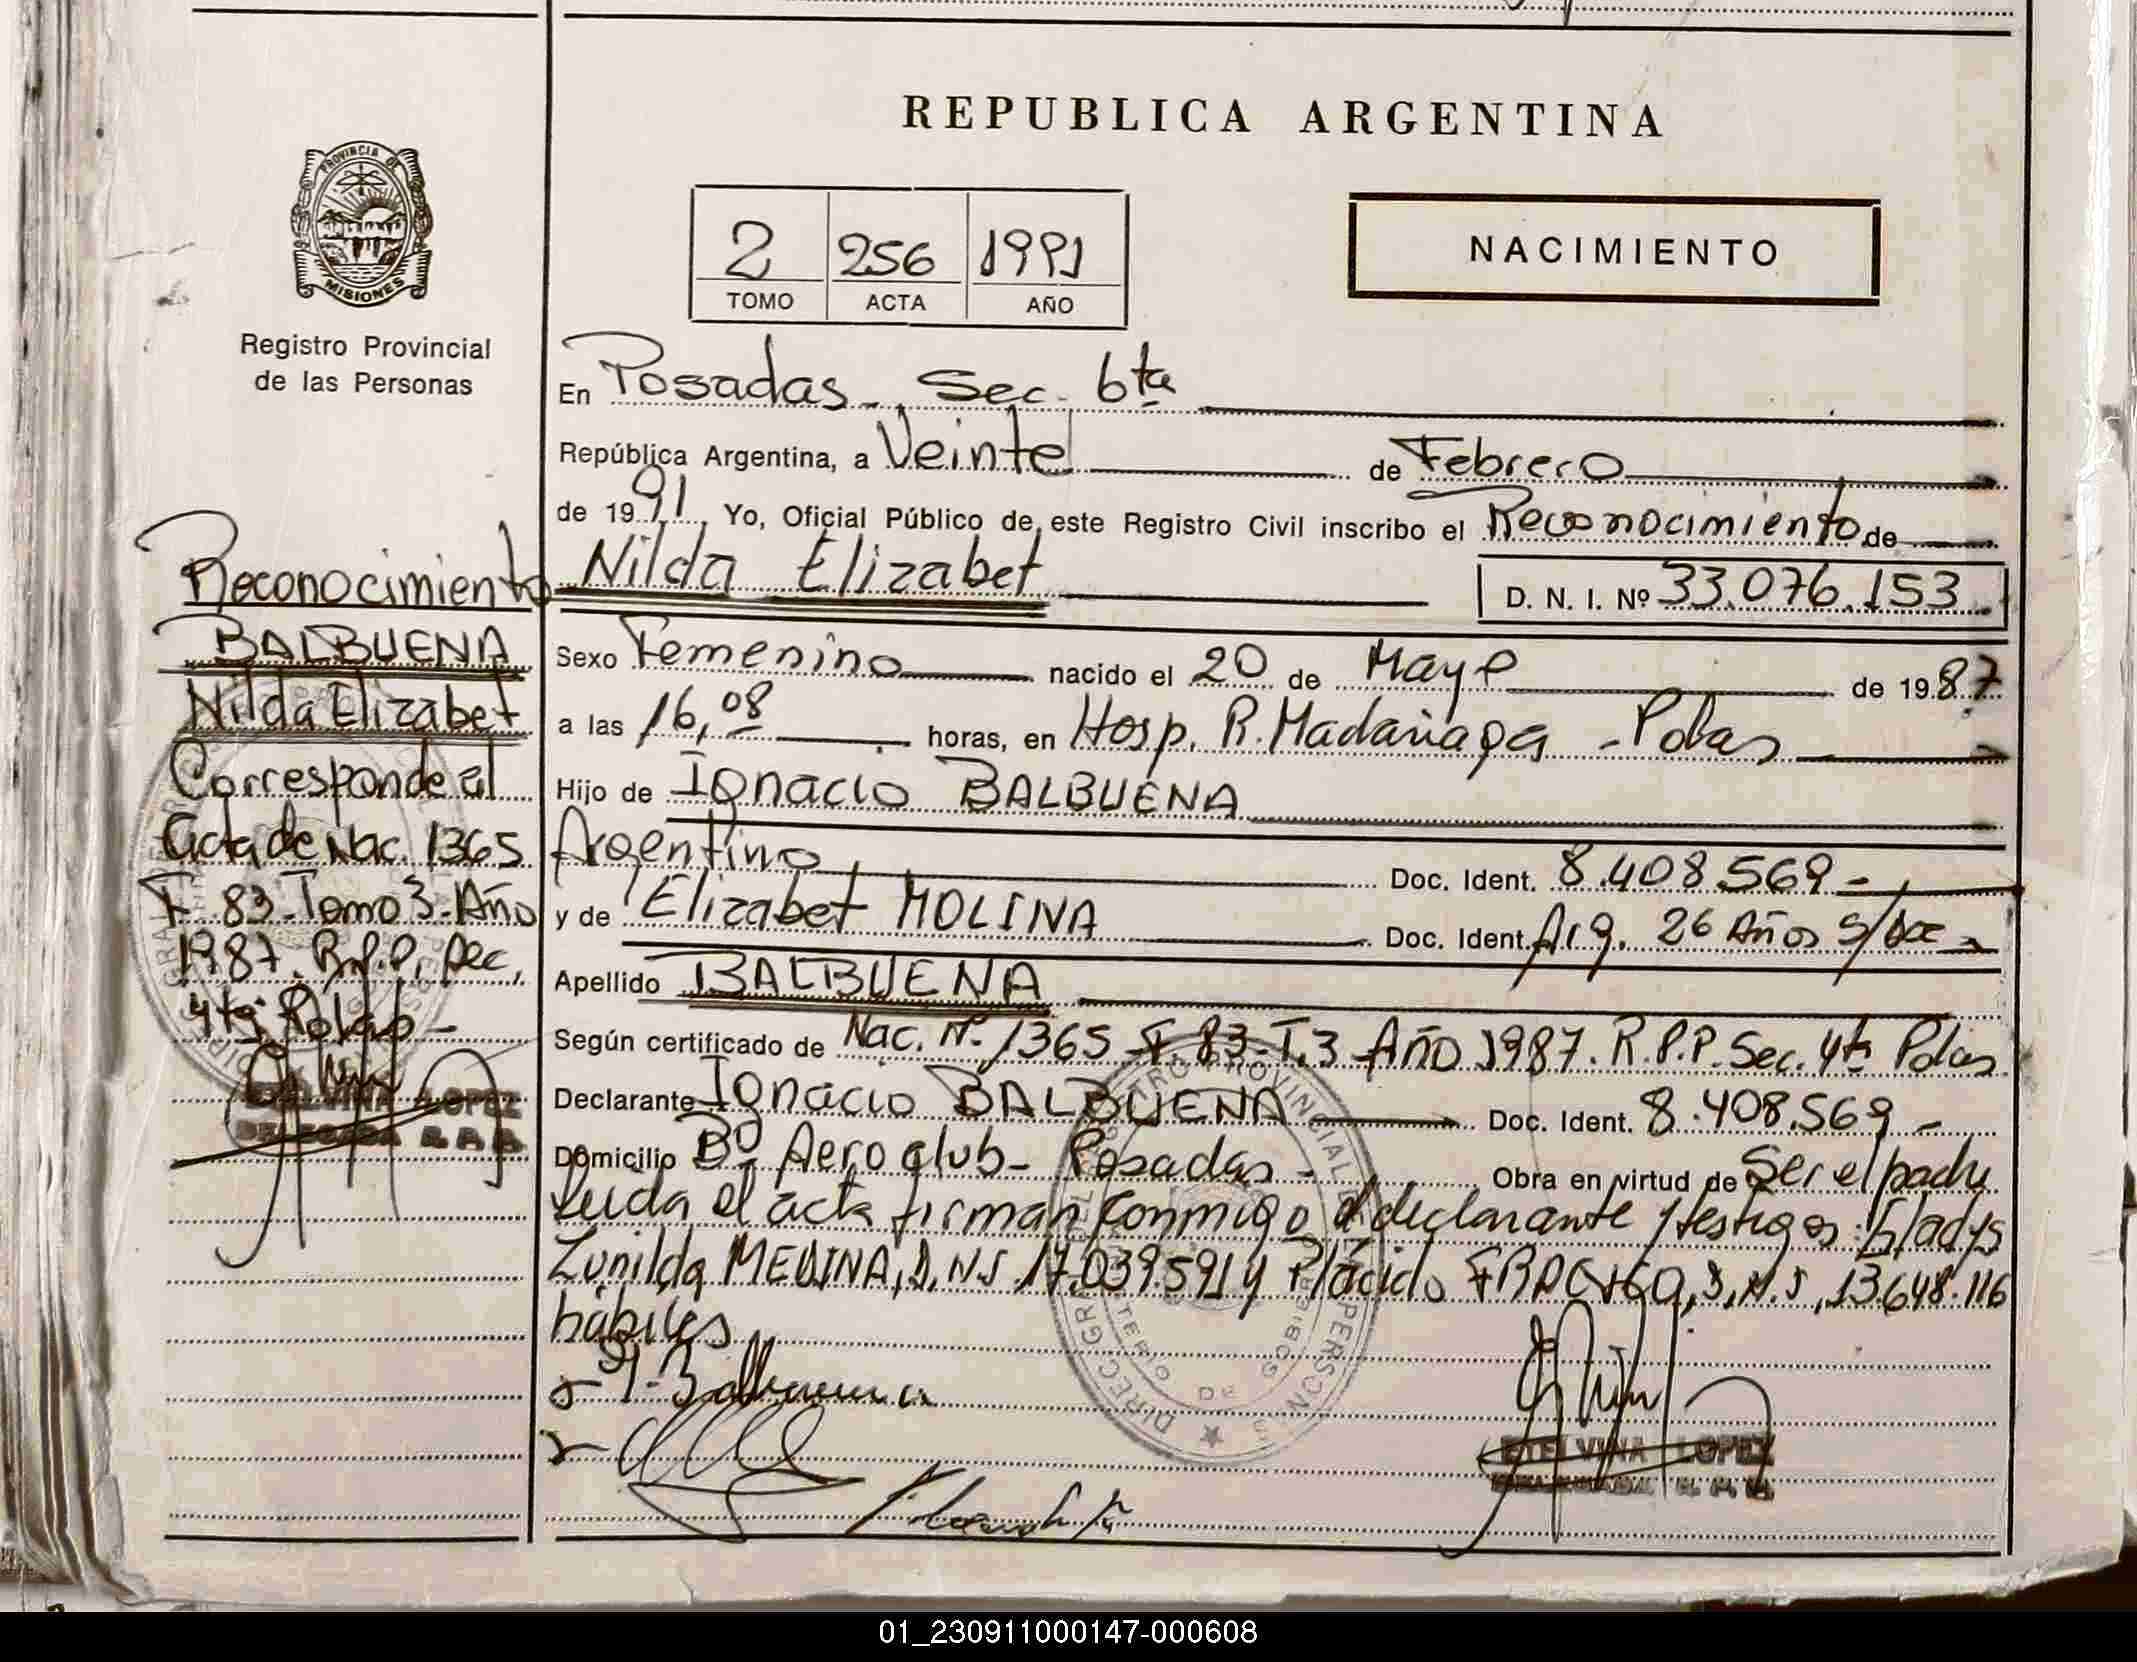 REPUBLICA ARGENTINA
PROVINCIA DE
MISIONES
Registro Provincial
de las Personas
2 256 1991
TOMO ACTA AÑO
NACIMIENTO
En Posadas - Sec. 6ta
República Argentina, a Veinte de Febrero
de 1991, Yo, Oficial Público de este Registro Civil inscribo el Reconocimiento de
Nilda Elizabet D. N. I. Nº 33.076.153
Sexo Femenino nacido el 20 de Mayo de 1987
a las 16,08 horas, en Hosp. R. Madariaga - Pdas
Hijo de Ignacio BALBUENA
Argentino Doc. Ident. 8.408.569-
y de Elizabet MOLINA Doc. Ident. Arg. 26 Años s/doc
Apellido BALBUENA
Según certificado de Nac. Nº 1365 - F. 83 - T. 3 - Año 1987. R.P.P. Sec. 4ta Pdas
Declarante Ignacio BALBUENA Doc. Ident. 8.408.569-
Domicilio Bº Aero club - Posadas - Obra en virtud de Ser el padre
Leida el acta firman conmigo el declarante y testigos: Gladys
Zunilda MEDINA, D.N.I. 17.039.591 y Plácido D.N.I, 13.648.116
hábiles
I. Balbuena
ETELVINA LOPEZ
Reconocimiento
BALBUENA
Nilda Elizabet
Corresponde al
acta de Nac. 1365
F 83 - Tomo 3 - Año
1987. R.P.P. Sec.
4ta Pdas -
ETELVINA LOPEZ
DELEGADA R. P. P.
01_230911000147-000608